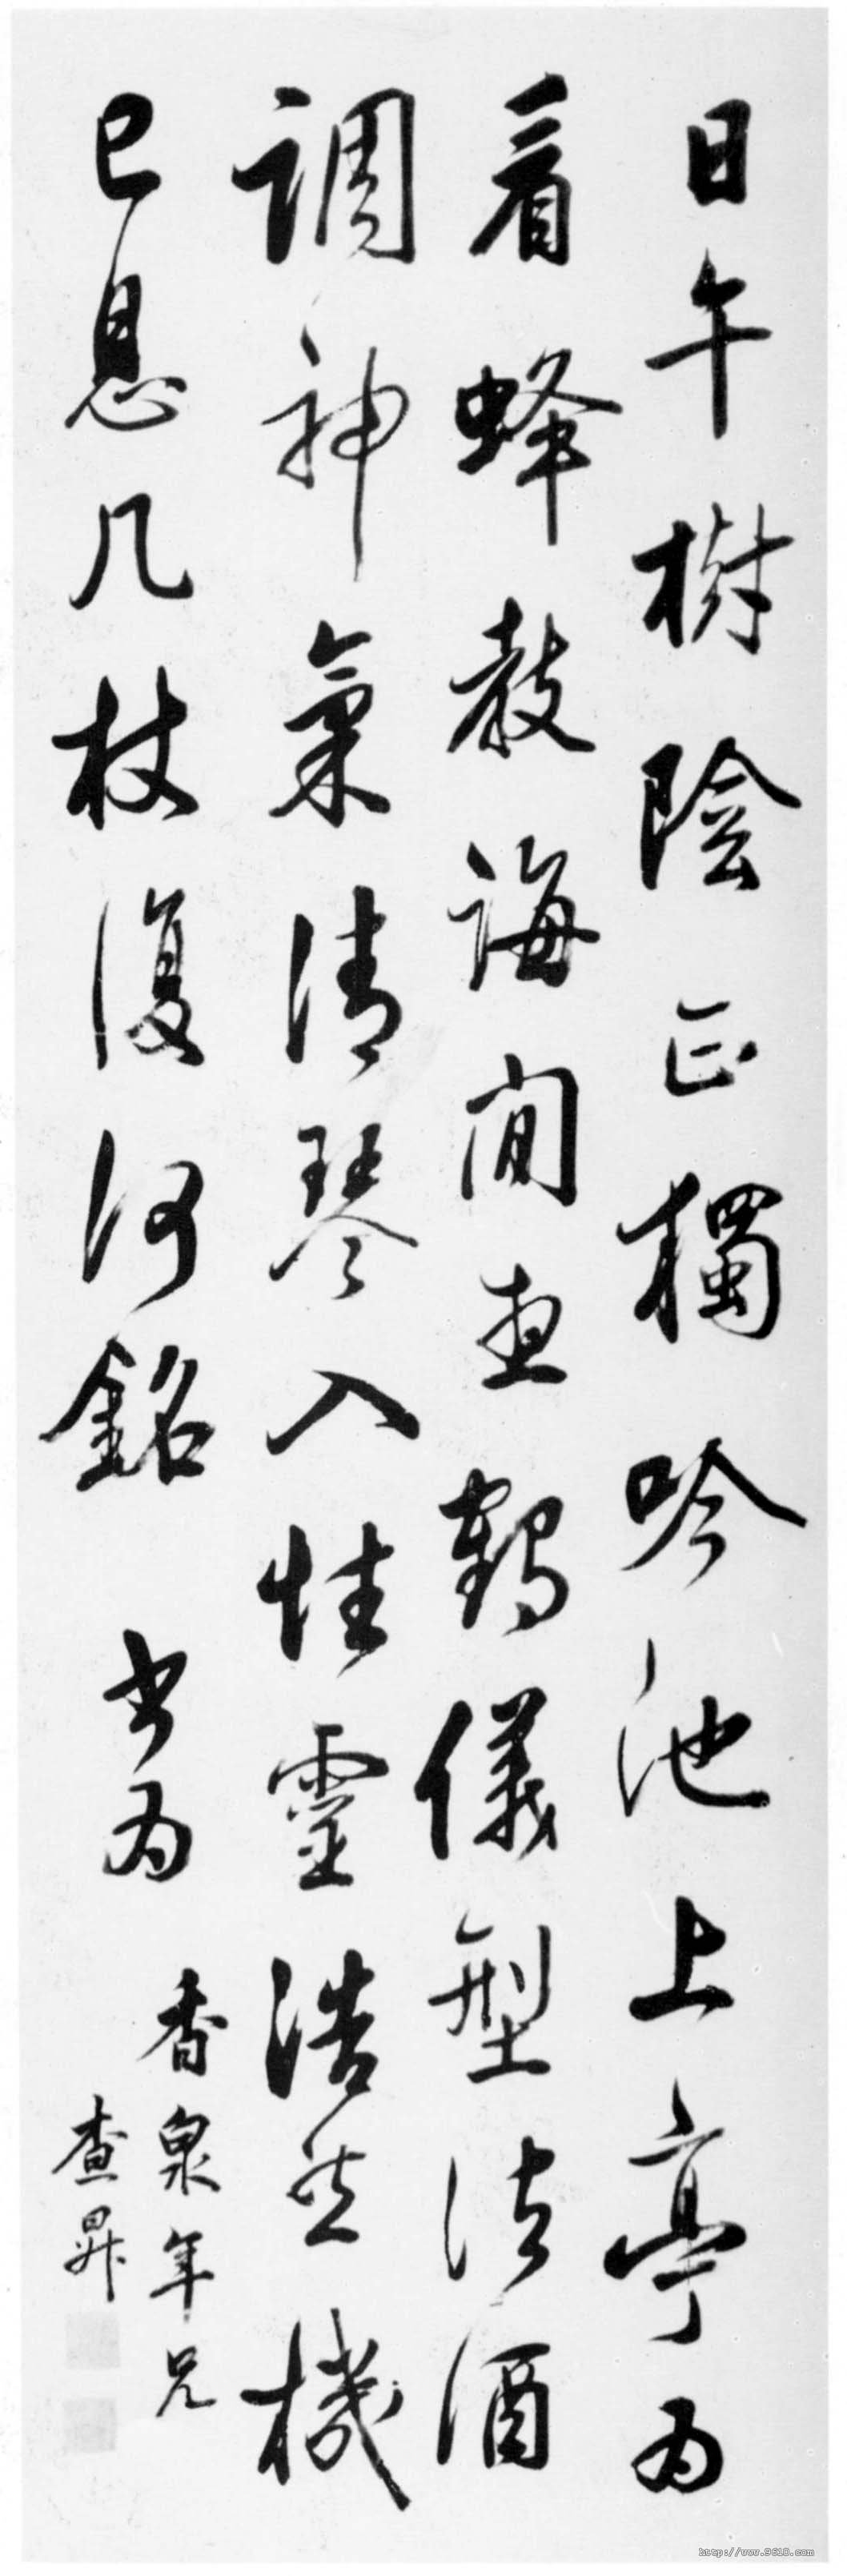 日午樹陰正獨吟池上亭為
看蜂教誨間鶴儀型法酒
調神氣清琴入性靈浩然機
已息几杖復何銘 書為
香泉年兄
查昇
http://www.9610.com